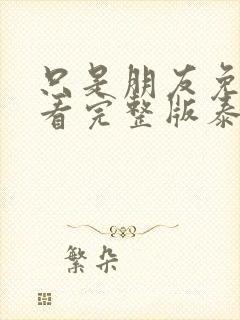 只是朋友免
看完整版泰
繁朵